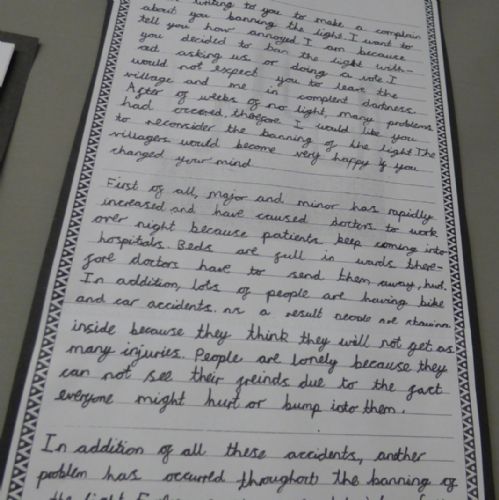 writing to you to make a complain
about you banning the light. I want to
tell you how annoyed I am because
you decided to ban the light with-
out asking us or doing a vote. I
would not expect you to leave the
village and me in complent darkness.
After of weeks of no light, many problems
had occured, therefore I would like you
to reconsider the banning of the light. The
villagers would become very happy if you
changed your mind
First of all, major and minor has rapidly
increased and have caused doctors to work
over night because patients keep coming into
hospitals. Beds are full in wards there-
fore doctors have to send them away, hurt.
In addition, lots of people are having bike
and car accidents. as a result people are
inside because they think they will not get as
many injuries. People are lonely because they
can not see their freinds due to the fact
everyone might hurt or bump into them.
In addition of all these accidents, another
problem has occurred throughout the banning of
the light